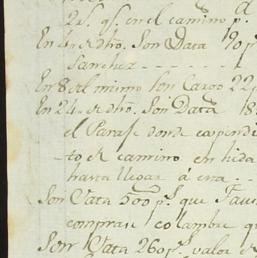 2s. qs. en el camino p.
En 4 de dho. Son Data 190 p
Sanchez - - - - - - 1
En 8 del mismo Son Cargo 22p
En 24 de dho. Son Data 18
el Paraje donde
to de camino en hida
hasta llegar á esa - -
Son Data 500 ps. que Fau
comprar colambre q
Son Data 260 ps. valor d